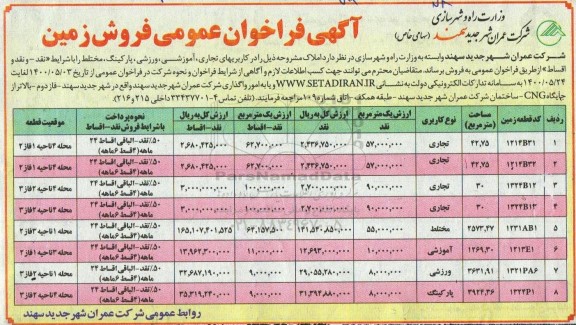 وزارت راه و شهرسازی
شرکت عمران شهر جدید سهند (سهامی خاص)
آگهی فراخوان عمومی فروش زمین
شرکت عمران شهر جدید سهند وابسته به وزارت راه و شهرسازی در نظر دارد املاک مشروحه ذیل را در کاربریهای تجاری، آموزشی، ورزشی، پارکینگ، مختلط را با شرایط «نقد - و نقد و
اقساط» از طریق فراخوان عمومی به فروش برساند. متقاضیان محترم می توانند جهت کسب اطلاعات لازم و آگاهی از شرایط فراخوان و نحوه شرکت در فراخوان عمومی از تاریخ ۱۴۰۰/۰۵/۰۳ لغایت
۱۴۰۰/۰۵/۲۴ به سامانه تدارکات الکترونیکی دولت به نشانی WWW.SETADIRAN.IR و یا به امور واگذاری شرکت عمران شهر جدید سهند واقع در شهر جدید سهند - فاز دوم - بالاتر از
جایگاه CNG - ساختمان شرکت عمران شهر جدید سهند - طبقه همکف - اتاق شماره ۱۰۹ مراجعه فرمایند. (تلفن تماس ۴-۳۳۴۳۷۷۰۱ داخلی ۲۱۵ و ۲۱۶)
ردیف کد قطعه زمین مساحت (مترمربع) نوع کاربری ارزش یک مترمربع نقد ارزش کل به ریال نقد ارزش یک مترمربع نقد-اقساط ارزش کل به ریال نقد-اقساط نحوه پرداخت با شرایط فروش نقد-اقساط موقعیت قطعه
۱ ۱۲۱۴B۳۱ ۴۲,۷۵ تجاری ۵۷,۰۰۰,۰۰۰ ۲,۴۳۶,۷۵۰,۰۰۰ ۶۲,۷۰۰,۰۰۰ ۲,۶۸۰,۴۲۵,۰۰۰ ۵۰٪ نقد-الباقی اقساط ۲۴ ماهه (۴ قسط ۶ ماهه) محله ۴ ناحیه ۱ فاز ۲
۲ ۱۲۱۴B۳۲ ۴۲,۷۵ تجاری ۵۷,۰۰۰,۰۰۰ ۲,۴۳۶,۷۵۰,۰۰۰ ۶۲,۷۰۰,۰۰۰ ۲,۶۸۰,۴۲۵,۰۰۰ ۵۰٪ نقد-الباقی اقساط ۲۴ ماهه (۴ قسط ۶ ماهه) محله ۴ ناحیه ۱ فاز ۲
۳ ۱۳۲۴B۱۲ ۳۰ تجاری ۹۰,۰۰۰,۰۰۰ ۲,۷۰۰,۰۰۰,۰۰۰ ۱۰۰,۰۰۰,۰۰۰ ۳,۰۰۰,۰۰۰,۰۰۰ ۵۰٪ نقد-الباقی اقساط ۲۴ ماهه (۴ قسط ۶ ماهه) محله ۴ ناحیه ۲ فاز ۳
۴ ۱۳۲۴B۱۳ ۳۰ تجاری ۹۰,۰۰۰,۰۰۰ ۲,۷۰۰,۰۰۰,۰۰۰ ۱۰۰,۰۰۰,۰۰۰ ۳,۰۰۰,۰۰۰,۰۰۰ ۵۰٪ نقد-الباقی اقساط ۲۴ ماهه (۴ قسط ۶ ماهه) محله ۴ ناحیه ۲ فاز ۳
۵ ۱۲۳۱AB۱ ۲۵۷۳,۲۷ مختلط ۵۵,۰۰۰,۰۰۰ ۱۴۱,۵۳۰,۸۵۰,۰۰۰ ۶۴,۱۵۷,۵۰۰ ۱۶۵,۱۰۷,۴۰۱,۵۲۵ ۵۰٪ نقد-الباقی اقساط ۲۴ ماهه (۴ قسط ۶ ماهه)
۶ ۱۲۱۳E۱ ۱۲۶۹,۳۰ آموزشی ۱۰,۰۰۰,۰۰۰ ۱۲,۶۹۳,۰۰۰,۰۰۰ ۱۱,۰۰۰,۰۰۰ ۱۳,۹۶۲,۳۰۰,۰۰۰ ۵۰٪ نقد-الباقی اقساط ۲۴ ماهه (۴ قسط ۶ ماهه) محله ۳ ناحیه ۱ فاز ۲
۷ ۱۳۲۱PA۶ ۳۶۳۱,۹۱ ورزشی ۸,۰۰۰,۰۰۰ ۲۹,۰۵۵,۲۸۰,۰۰۰ ۹,۰۰۰,۰۰۰ ۳۲,۶۸۷,۱۹۰,۰۰۰ ۵۰٪ نقد-الباقی اقساط ۲۴ ماهه (۴ قسط ۶ ماهه)
۸ ۱۳۲۲P۱ ۳۹۲۴,۳۶ پارکینگ ۸,۰۰۰,۰۰۰ ۳۱,۳۹۴,۸۸۰,۰۰۰ ۹,۰۰۰,۰۰۰ ۳۵,۳۱۹,۲۴۰,۰۰۰ ۵۰٪ نقد-الباقی اقساط ۲۴ ماهه (۴ قسط ۶ ماهه) محله ۲ ناحیه ۲ فاز ۳
روابط عمومی شرکت عمران شهر جدید سهند